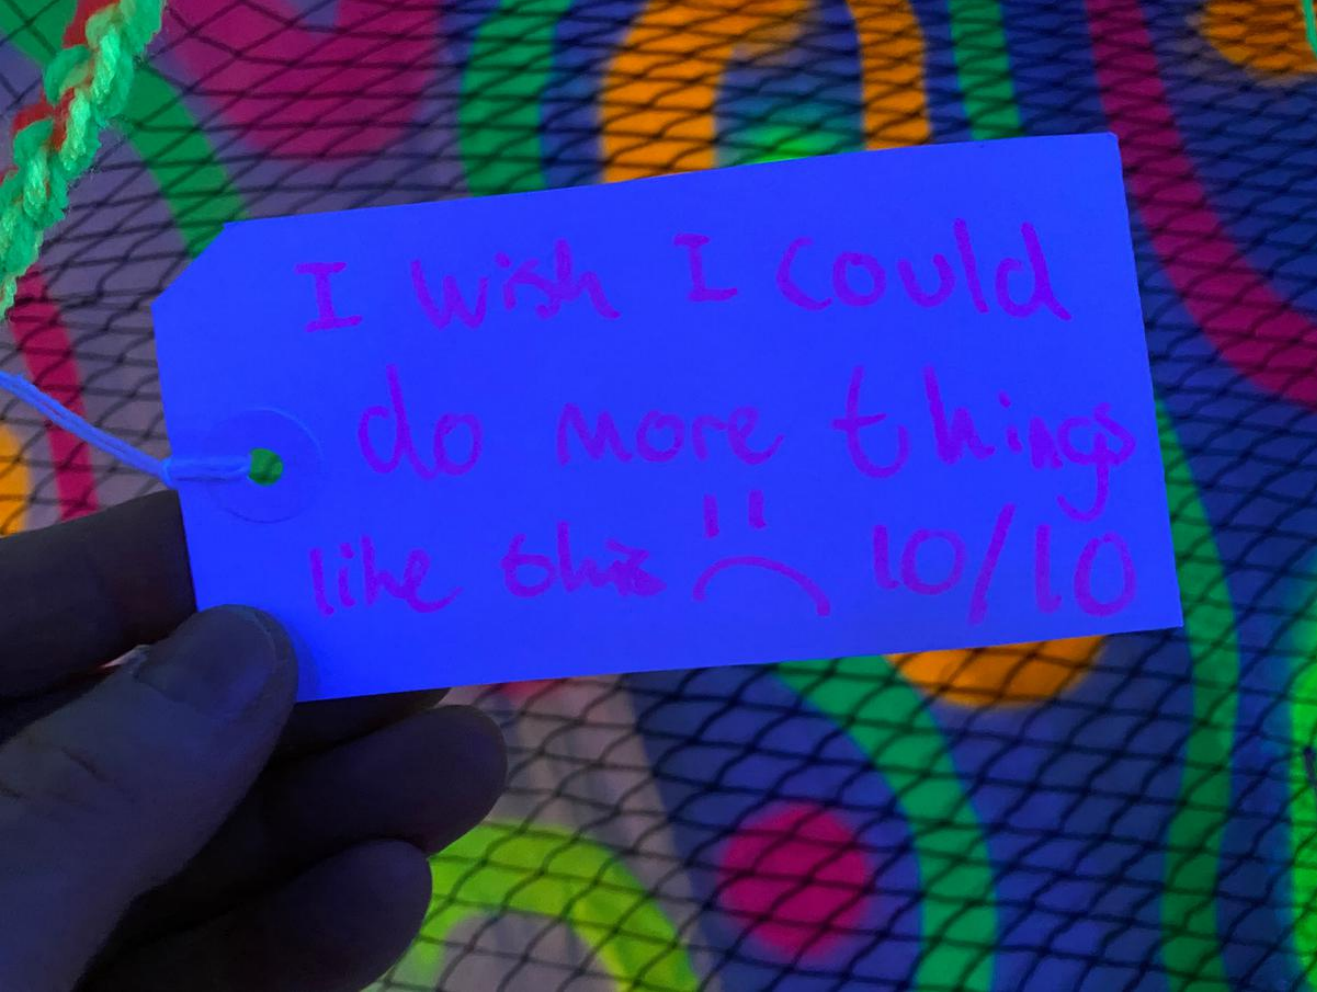 I wish I could
do more things
like this :( 10/10